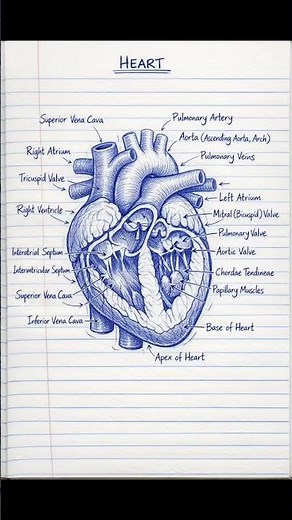 HEART
Superior Vena Cava
Pulmonary Artery
Aorta (Ascending Aorta, Arch)
Right Atrium
Pulmonary Veins
Tricuspid Valve
Left Atrium
Right Ventricle
Mitral (Bicuspid) Valve
Pulmonary Valve
Interatrial Septum
Aortic Valve
Interntricular Septum
Chordae Tendineae
Superior Vena Cava
Papillary Muscles
Inferior Vena Cava
Base of Heart
Apex of Heart